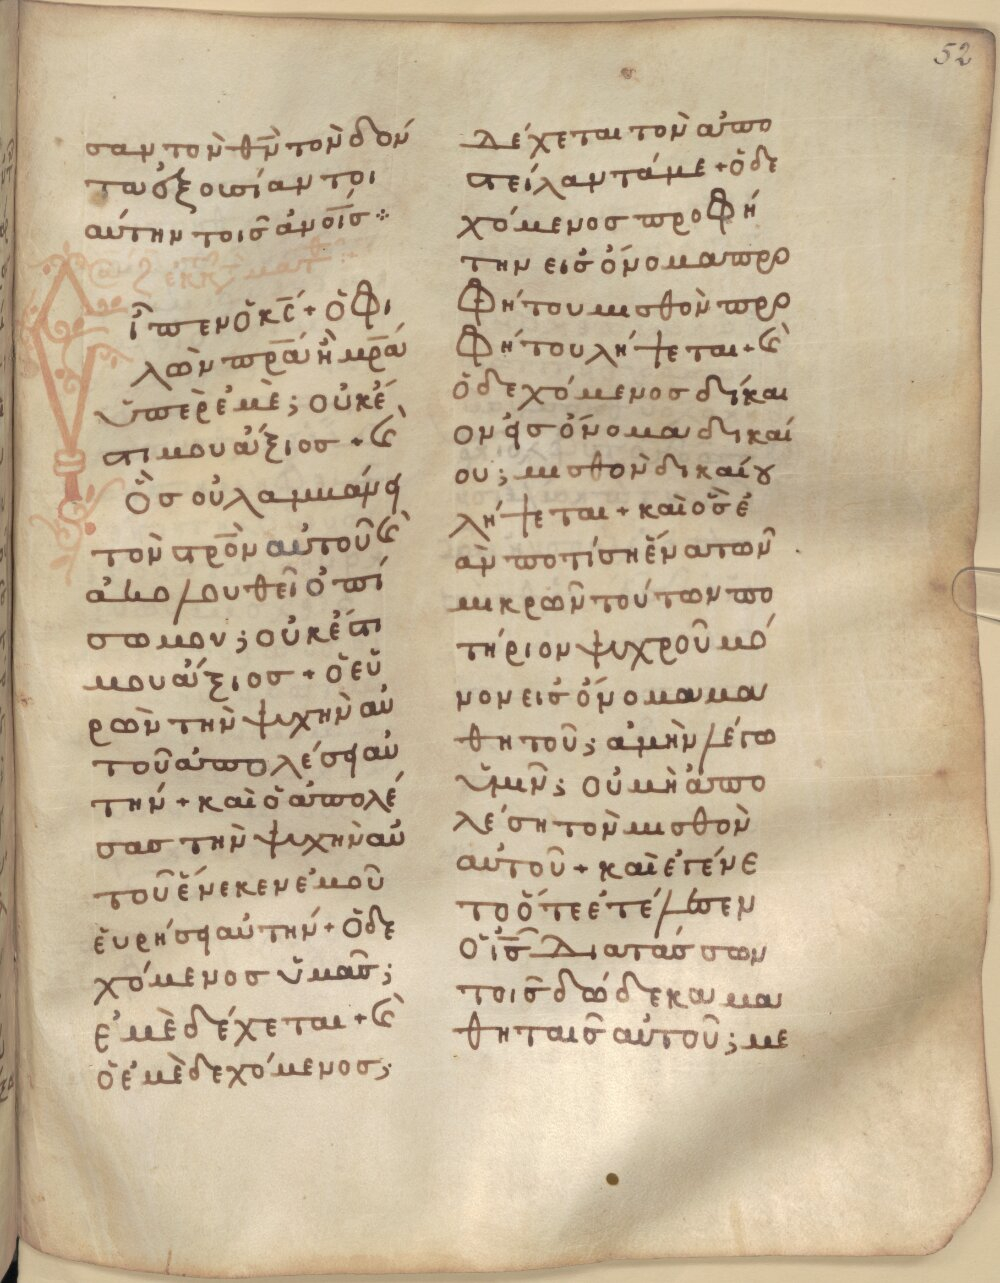 52
σαν τὸν θ̅ν̅ τὸν δόν
τα ἐξουσίαν τοι
αύτην τοῖς ἀν̅οι̅ς ⁘
ἐκ τοῦ κατὰ Ματθ
Εἶπεν ὁ κ̅ς̅ + ὁ φι
λῶν π̅ρ̅α̅ ἢ μ̅ρ̅α̅
ὑπὲρ ἐμὲ; οὐκ ἔ
στι μου ἄξιος + καὶ
ὃς οὐ λαμβάνει
τὸν σ̅τ̅ρ̅ὸν αὐτοῦ καὶ
ἀκολουθεῖ ὀπί
σω μου; οὐκ ἔστι
μου ἄξιος + ὁ εὑ
ρὼν τὴν ψυχὴν αὐ
τοῦ ἀπολέσει αὐ
τήν + καὶ ὁ ἀπολέ
σας τὴν ψυχὴν αὐ
τοῦ ἕνεκεν ἐμοῦ
εὑρήσει αὐτήν + ὁ δε
χόμενος ὑμᾶς;
ἐμὲ δέχεται + καὶ
ὁ ἐμὲ δεχόμενος;
δέχεται τὸν ἀπο
στείλαντά με + ὁ δε
χόμενος προφή
την εἰς ὄνομα προ
φήτου μισθὸν προ
φήτου λήψεται + καὶ
ὁ δεχόμενος δίκαι
ον εἰς ὄνομα δικαί
ου; μισθὸν δικαίου
λήψεται + καὶ ὃς ἐ
ὰν ποτίσῃ ἕνα τῶν
μικρῶν τούτων πο
τήριον ψυχροῦ μό
νον εἰς ὄνομα μα
θητοῦ; ἀμὴν λέγω
ὑμῖν; οὐ μὴ ἀπο
λέσῃ τὸν μισθὸν
αὐτοῦ + καὶ ἐγένε
το ὅτε ἐτέλεσεν
ὁ ι̅ς̅ διατάσσων
τοῖς δώδεκα μα
θηταῖς αὐτοῦ; με